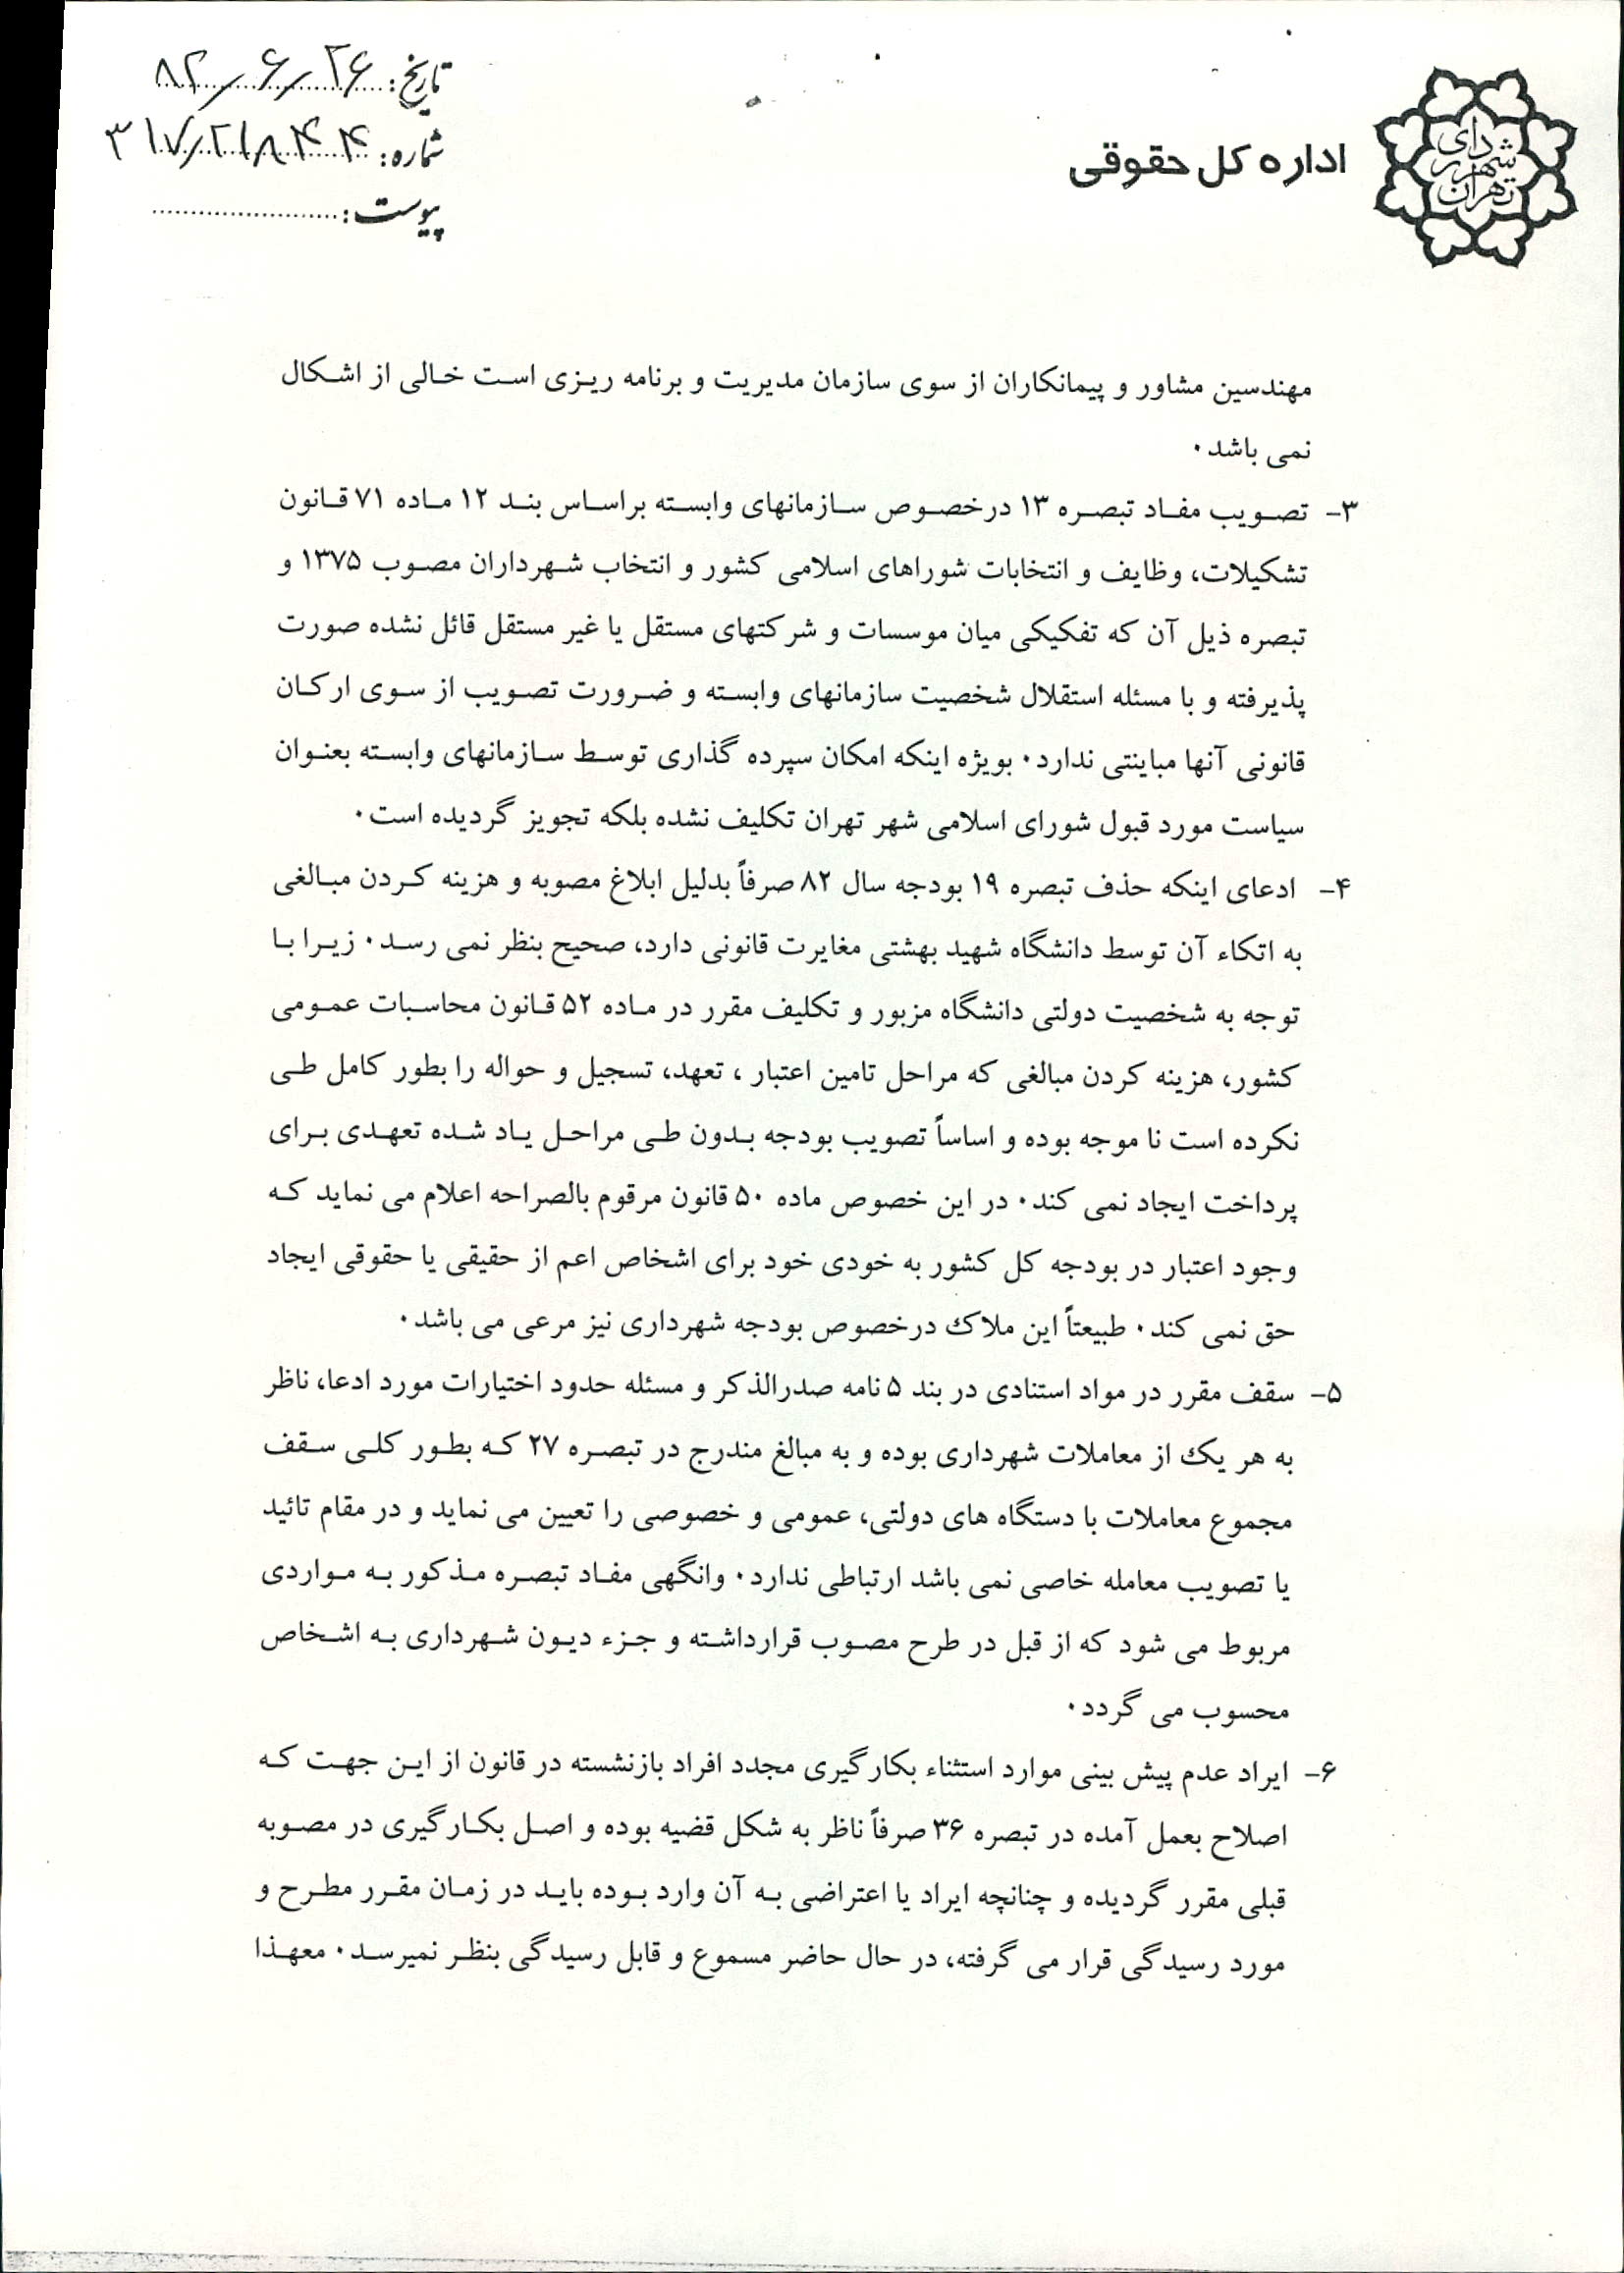 شهرداری تهران
اداره کل حقوقی
تاریخ: ۸۲/۶/۲۶
شماره: ۳۱۷/۲۱۸۴۴
پیوست:
مهندسین مشاور و پیمانکاران از سوی سازمان مدیریت و برنامه ریزی است خالی از اشکال
نمی باشد.
۳- تصویب مفاد تبصره ۱۳ درخصوص سازمانهای وابسته براساس بند ۱۲ ماده ۷۱ قانون
تشکیلات، وظایف و انتخابات شوراهای اسلامی کشور و انتخاب شهرداران مصوب ۱۳۷۵ و
تبصره ذیل آن که تفکیکی میان موسسات و شرکتهای مستقل یا غیر مستقل قائل نشده صورت
پذیرفته و با مسئله استقلال شخصیت سازمانهای وابسته و ضرورت تصویب از سوی ارکان
قانونی آنها مباینتی ندارد. بویژه اینکه امکان سپرده گذاری توسط سازمانهای وابسته بعنوان
سیاست مورد قبول شورای اسلامی شهر تهران تکلیف نشده بلکه تجویز گردیده است.
۴- ادعای اینکه حذف تبصره ۱۹ بودجه سال ۸۲ صرفاً بدلیل ابلاغ مصوبه و هزینه کردن مبالغی
به اتکاء آن توسط دانشگاه شهید بهشتی مغایرت قانونی دارد، صحیح بنظر نمی رسد. زیرا با
توجه به شخصیت دولتی دانشگاه مزبور و تکلیف مقرر در ماده ۵۲ قانون محاسبات عمومی
کشور، هزینه کردن مبالغی که مراحل تامین اعتبار ، تعهد، تسجیل و حواله را بطور کامل طی
نکرده است نا موجه بوده و اساساً تصویب بودجه بدون طی مراحل یاد شده تعهدی برای
پرداخت ایجاد نمی کند. در این خصوص ماده ۵۰ قانون مرقوم بالصراحه اعلام می نماید که
وجود اعتبار در بودجه کل کشور به خودی خود برای اشخاص اعم از حقیقی یا حقوقی ایجاد
حق نمی کند. طبیعتاً این ملاک درخصوص بودجه شهرداری نیز مرعی می باشد.
۵- سقف مقرر در مواد استنادی در بند ۵ نامه صدرالذکر و مسئله حدود اختیارات مورد ادعا، ناظر
به هر یک از معاملات شهرداری بوده و به مبالغ مندرج در تبصره ۲۷ که بطور کلی سقف
مجموع معاملات با دستگاه های دولتی، عمومی و خصوصی را تعیین می نماید و در مقام تائید
یا تصویب معامله خاصی نمی باشد ارتباطی ندارد. وانگهی مفاد تبصره مذکور به مواردی
مربوط می شود که از قبل در طرح مصوب قرارداشته و جزء دیون شهرداری به اشخاص
محسوب می گردد.
۶- ایراد عدم پیش بینی موارد استثناء بکارگیری مجدد افراد بازنشسته در قانون از این جهت که
اصلاح بعمل آمده در تبصره ۳۶ صرفاً ناظر به شکل قضیه بوده و اصل بکارگیری در مصوبه
قبلی مقرر گردیده و چنانچه ایراد یا اعتراضی به آن وارد بوده باید در زمان مقرر مطرح و
مورد رسیدگی قرار می گرفته، در حال حاضر مسموع و قابل رسیدگی بنظر نمیرسد. معهذا